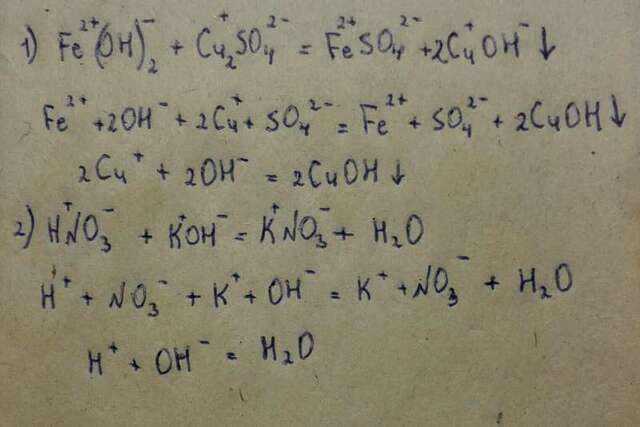 1) Fe²⁺(OH)₂⁻ + Cu₂⁺SO₄²⁻ = Fe²⁺SO₄²⁻ + 2Cu⁺OH⁻↓
Fe²⁺ + 2OH⁻ + 2Cu⁺ + SO₄²⁻ = Fe²⁺ + SO₄²⁻ + 2CuOH↓
2Cu⁺ + 2OH⁻ = 2CuOH↓
2) H⁺NO₃⁻ + K⁺OH⁻ = K⁺NO₃⁻ + H₂O
H⁺ + NO₃⁻ + K⁺ + OH⁻ = K⁺ + NO₃⁻ + H₂O
H⁺ + OH⁻ = H₂O